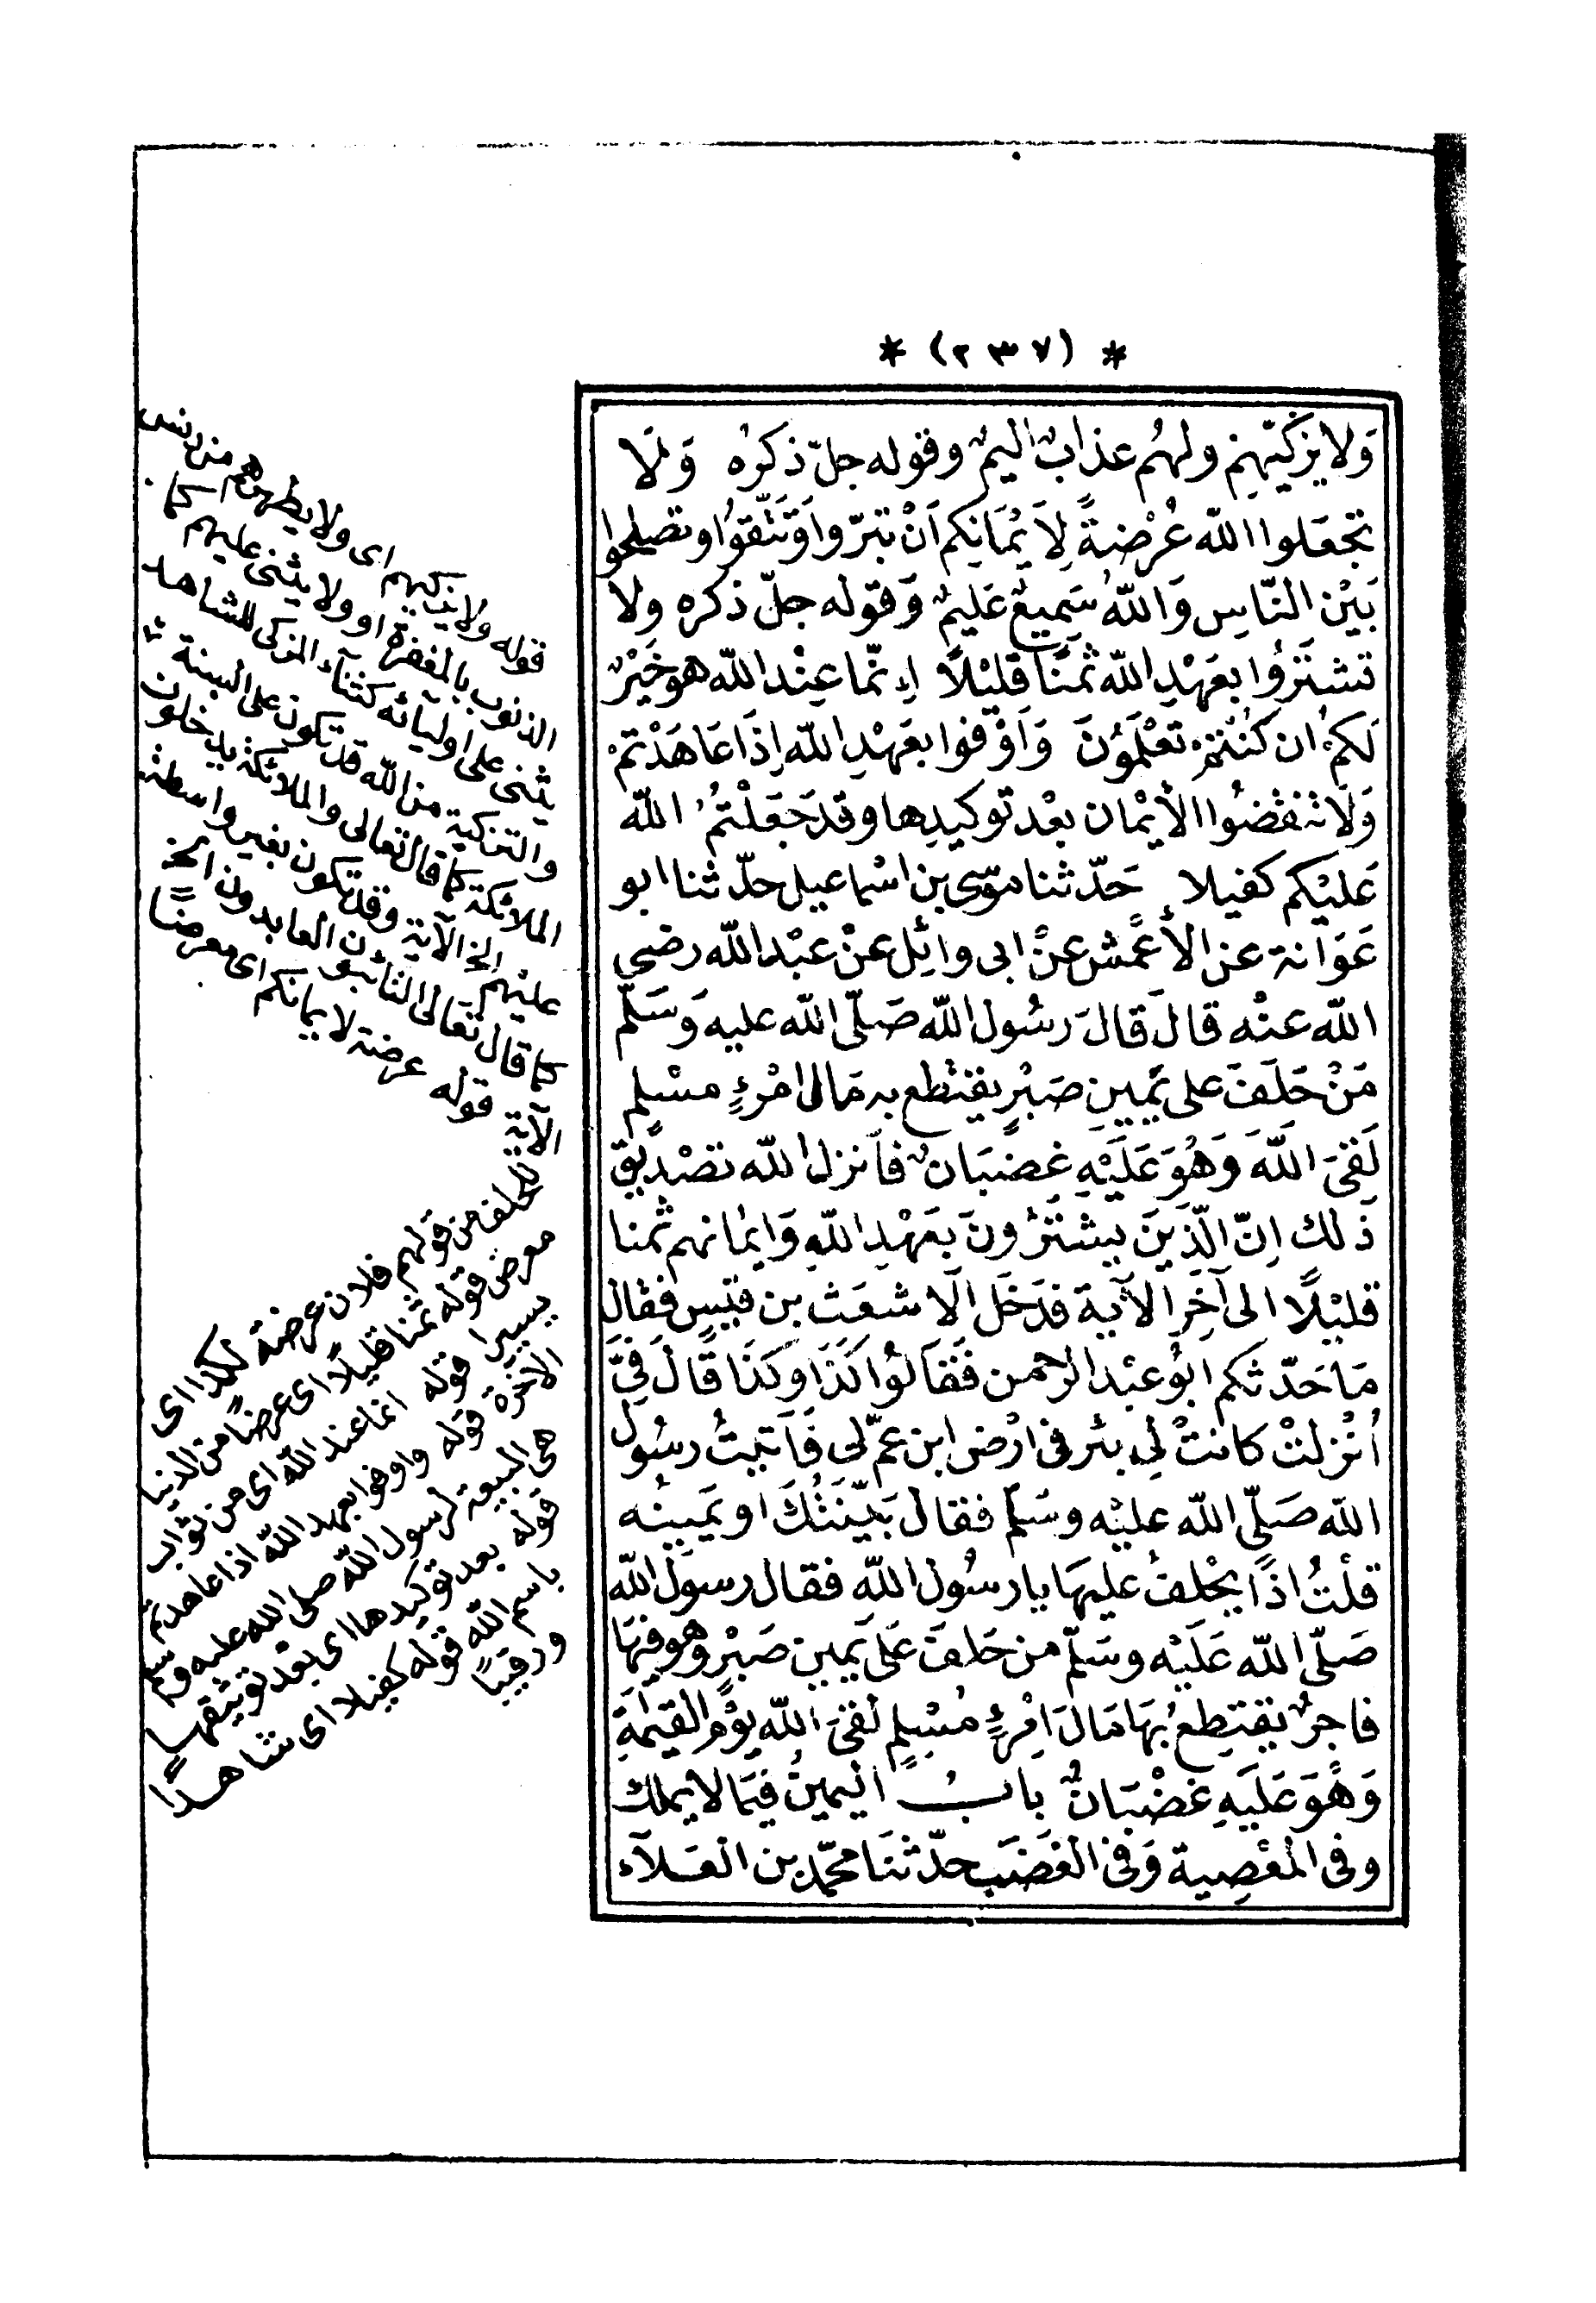 * (٢٣٧) *
وَلا يزكّيهم ولهُم عذابٌ اليمٌ وقوله جلّ ذكرُه وَلَا
تجعَلوا اللّه عُرْضةً لِاَيْمَانِكم اَنْ تبرّوا وَتَتّقوُا وتصلحوا
بَيْن النّاسِ وَاللّهُ سَميعٌ عَليمٌ وَقوله جلّ ذكره ولا
تشتَرُوا بعَهْدِ اللّه ثمَنًا قليْلًا اِنّما عِنْد اللّه هو خَيْرٌ
لَكمْ ان كُنْتمْ تعْلَموُنَ وَاَوْفوا بعَهْدِ اللّه اِذَا عَاهَدْتمْ
وَلَا تنقضُوا الأيْمان بعْد توكيدِها وقد جَعَلْتُمُ اللّه
عَليْكم كفيلا حَدّثنا موسى بن اسْماعيل حدّثنا ابو
عَوَانة عن الأعْمش عنْ ابى وائِل عنْ عبْد اللّه رضي
اللّه عنْه قالَ قالَ رسُول اللّه صَلّى اللّه عليه وَسَلّم
مَنْ حَلَفَ على يَمِينِ صَبْرٍ يقتطع به مَال امْرءٍ مسْلم
لَقِىَ اللّهَ وَهُوَ عَلَيْهِ غضبَانٌ فأنزل اللّه تصْديق
ذلك اِنّ الّذِينَ يشتَرُونَ بعَهْدِ اللّهِ وَايمانهم ثمنا
قليْلًا الى آخَرِ الآية فدَخَل الَاشعَث بن قيسٍ فقال
مَا حَدّثكم ابُو عبْد الرحمن فَقَالوُا كَذَا وكَذَا قَالَ فِىَّ
اُنْزلتْ كانتْ لِي بئر فى ارْض ابن عمّ لى فَاَتيتُ رسُول
اللّه صَلّى اللّه عليْه وسَلّم فقال بَيّنَتُكَ او يَمينُه
قلْتُ اذًا يحْلفُ عليهَا يا رسُول اللّهِ فقال رسوَل اللّه
صَلّى اللّه عَلَيْه وسَلّم من حَلفَ عَلَى يَمِينِ صَبْرٍ وهو فيهَا
فاجرٌ يقتطِعُ بهَا مَالَ امْرءٍ مُسْلمٍ لقىَ اللّه يوْم القيٰمَةِ
وَهُوَ عَلَيهِ غضْبَانٌ بابُ اليمينُ فيمَا لا يملك
وفى المعْصِية وَفى الغَضَب حدّثنَا محمّد بن العَلَآء
قوله ولا يزكيهم اى ولا يطهرهم من دنس
الذنوب بالمغفرة او ولا يثنى عليهم كما
يثنى على اوليائه كثناء المزكى للشاهد
والتزكية من اللّه قد تكون على السنة
الملائكة كما قال تعالى والملائكة يدخلون
عليهم الخ الآية وقد تكون بغير واسطة
كما قال تعالى التائبون العابدون الخ
الآية قوله عرضة لايمانكم اى معرضًا
للحلف من قولهم فلان عرضة لكذا اى
معرض قوله ثمنا قليلًا اى عرضًا من الدنيا
يسيرا قوله انما عند اللّه اى من ثواب
الآخرة قوله واوفوا بعهد اللّه اذا عاهدتم
هى البيعة لرسول اللّه صلى اللّه عليه وسلم
قوله بعد توكيدها اى بعد توثيقها
باسم اللّه قوله كفيلا اى شاهدًا
ورقيبًا